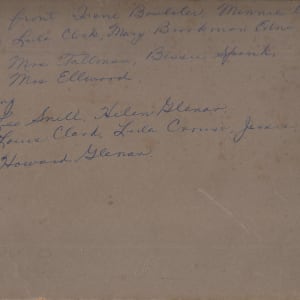 front Irene Bowlster, Minnie
Lula Clark, Mary Brookman Edna
Mrs Tallman, Bessie Spink,
Mrs Ellwood.
Lee Snell, Helen Glenar
Louis Clark, Lula Crouse, Jessie
Howard Glenar